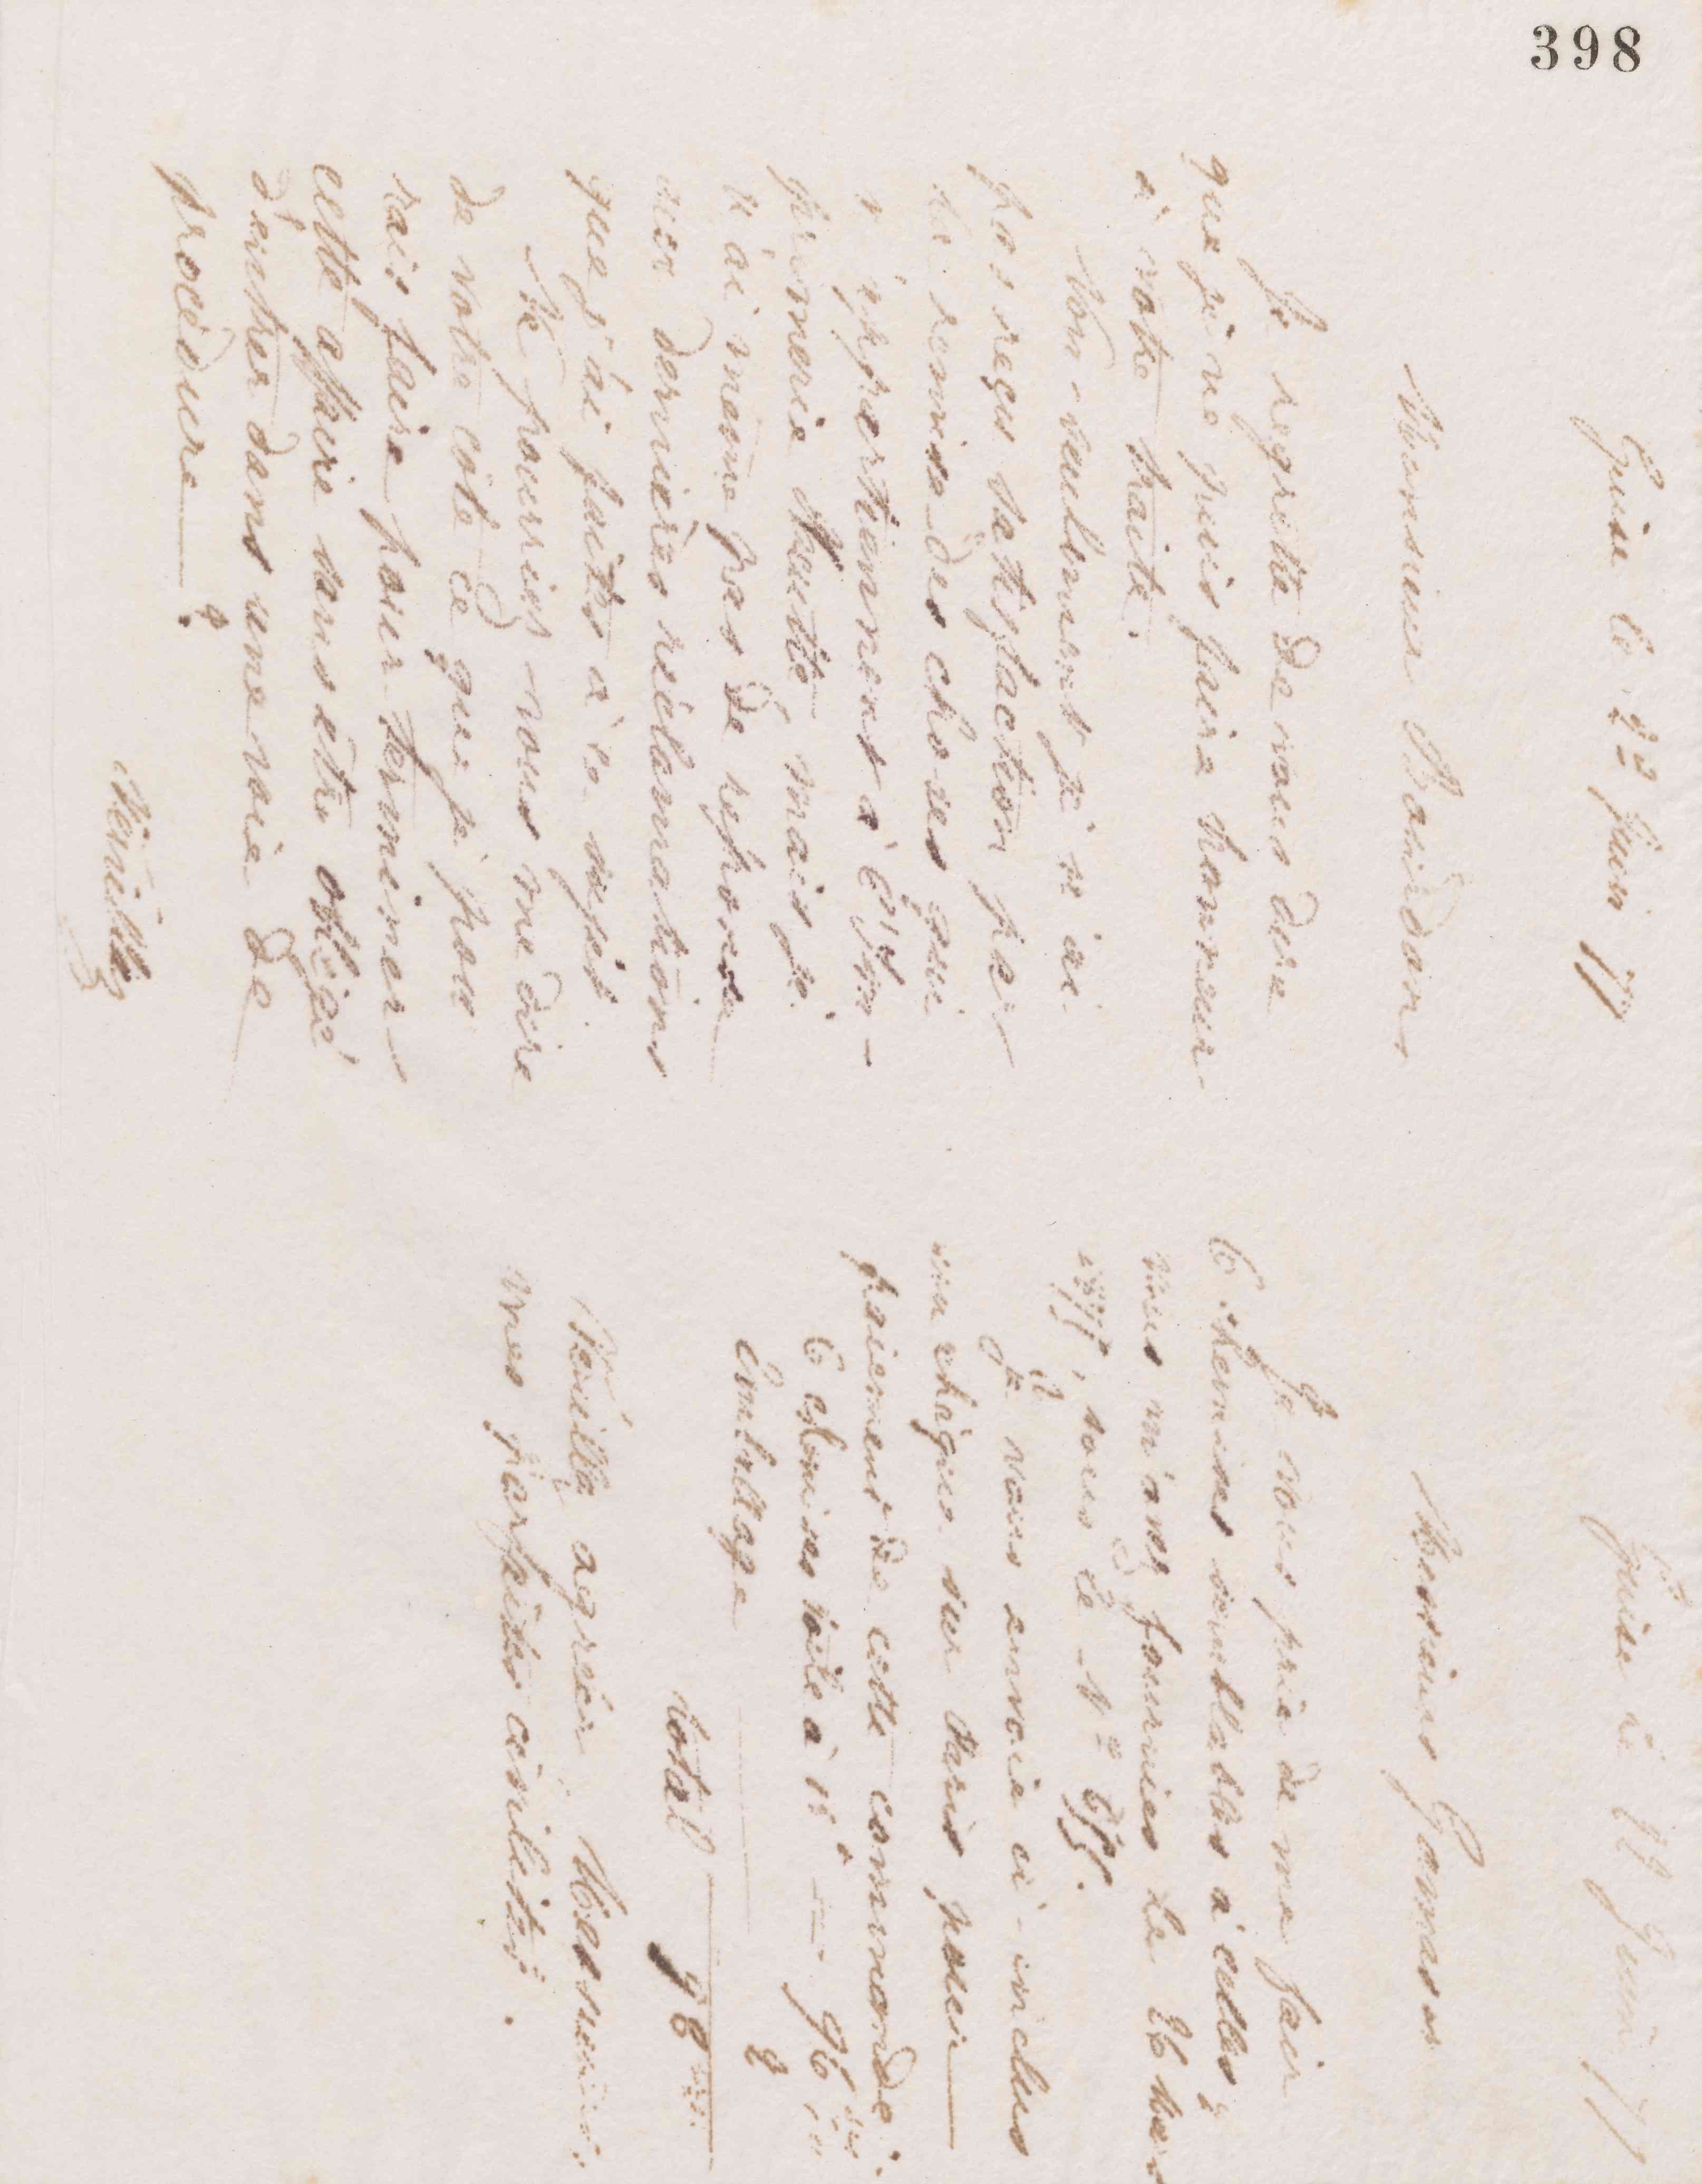 398
Guise le 22 Juin 77
Monsieur Bourdon
Je regrette de vous dire
que je ne puis faire honneur
à votre traite.
Non seulement je n'ai
pas reçu satisfaction par
la remise des choses qui
m'appartiennent à l'Im-
primerie Nouvelle, mais je
n'ai même pas de réponse
aux dernières réclamations
que j'ai faites à ce sujet.
Ne pourriez-vous me dire
de votre côté ce que je pou
rais faire pour terminer
cette affaire sans être obligé
d'entrer dans une voie de
procédure ?
Veuillez
Guise le 22 Juin 77
Messieurs
Je vous prie de me fair
6 chemises semblables à celles
que vous m'avez fournies le 26
1877, sous le N°
Je vous envoie ci-inclus
un chèque sur Paris pour
paiement de cette commande.
6 chemises toile à 16 96
Emballage 2
Total 98
Veuillez agréer Messieurs
mes parfaites civilités.